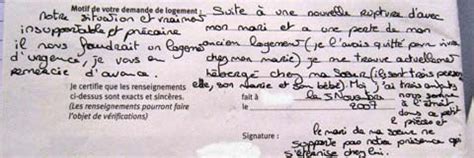 Motif de votre demande de logement : Suite à une nouvelle rupture d'avec
mon mari et a une perte de mon
ancien logement (je l'avais quitté pour vivre
chez mon mari) je me trouve actuellement
hébergé chez ma sœur (ils sont trois personnes
elle, son marie et son bébé). Moi j'ai trois enfants
nous sommes
à l'étroit
dans ce
petit t
le pressé et
le mari de ma sœur ne
supporte pas notre présence qui
s'éternise chez lui.
notre situation est vraiment
insupportable et précaire
il nous faudrait un logement
d'urgence, je vous en
remercie d'avance.
Je certifie que les renseignements
ci-dessus sont exacts et sincères.
(Les renseignements pourront faire
l'objet de vérifications)
fait à
le 5 Novembre
2007
Signature :